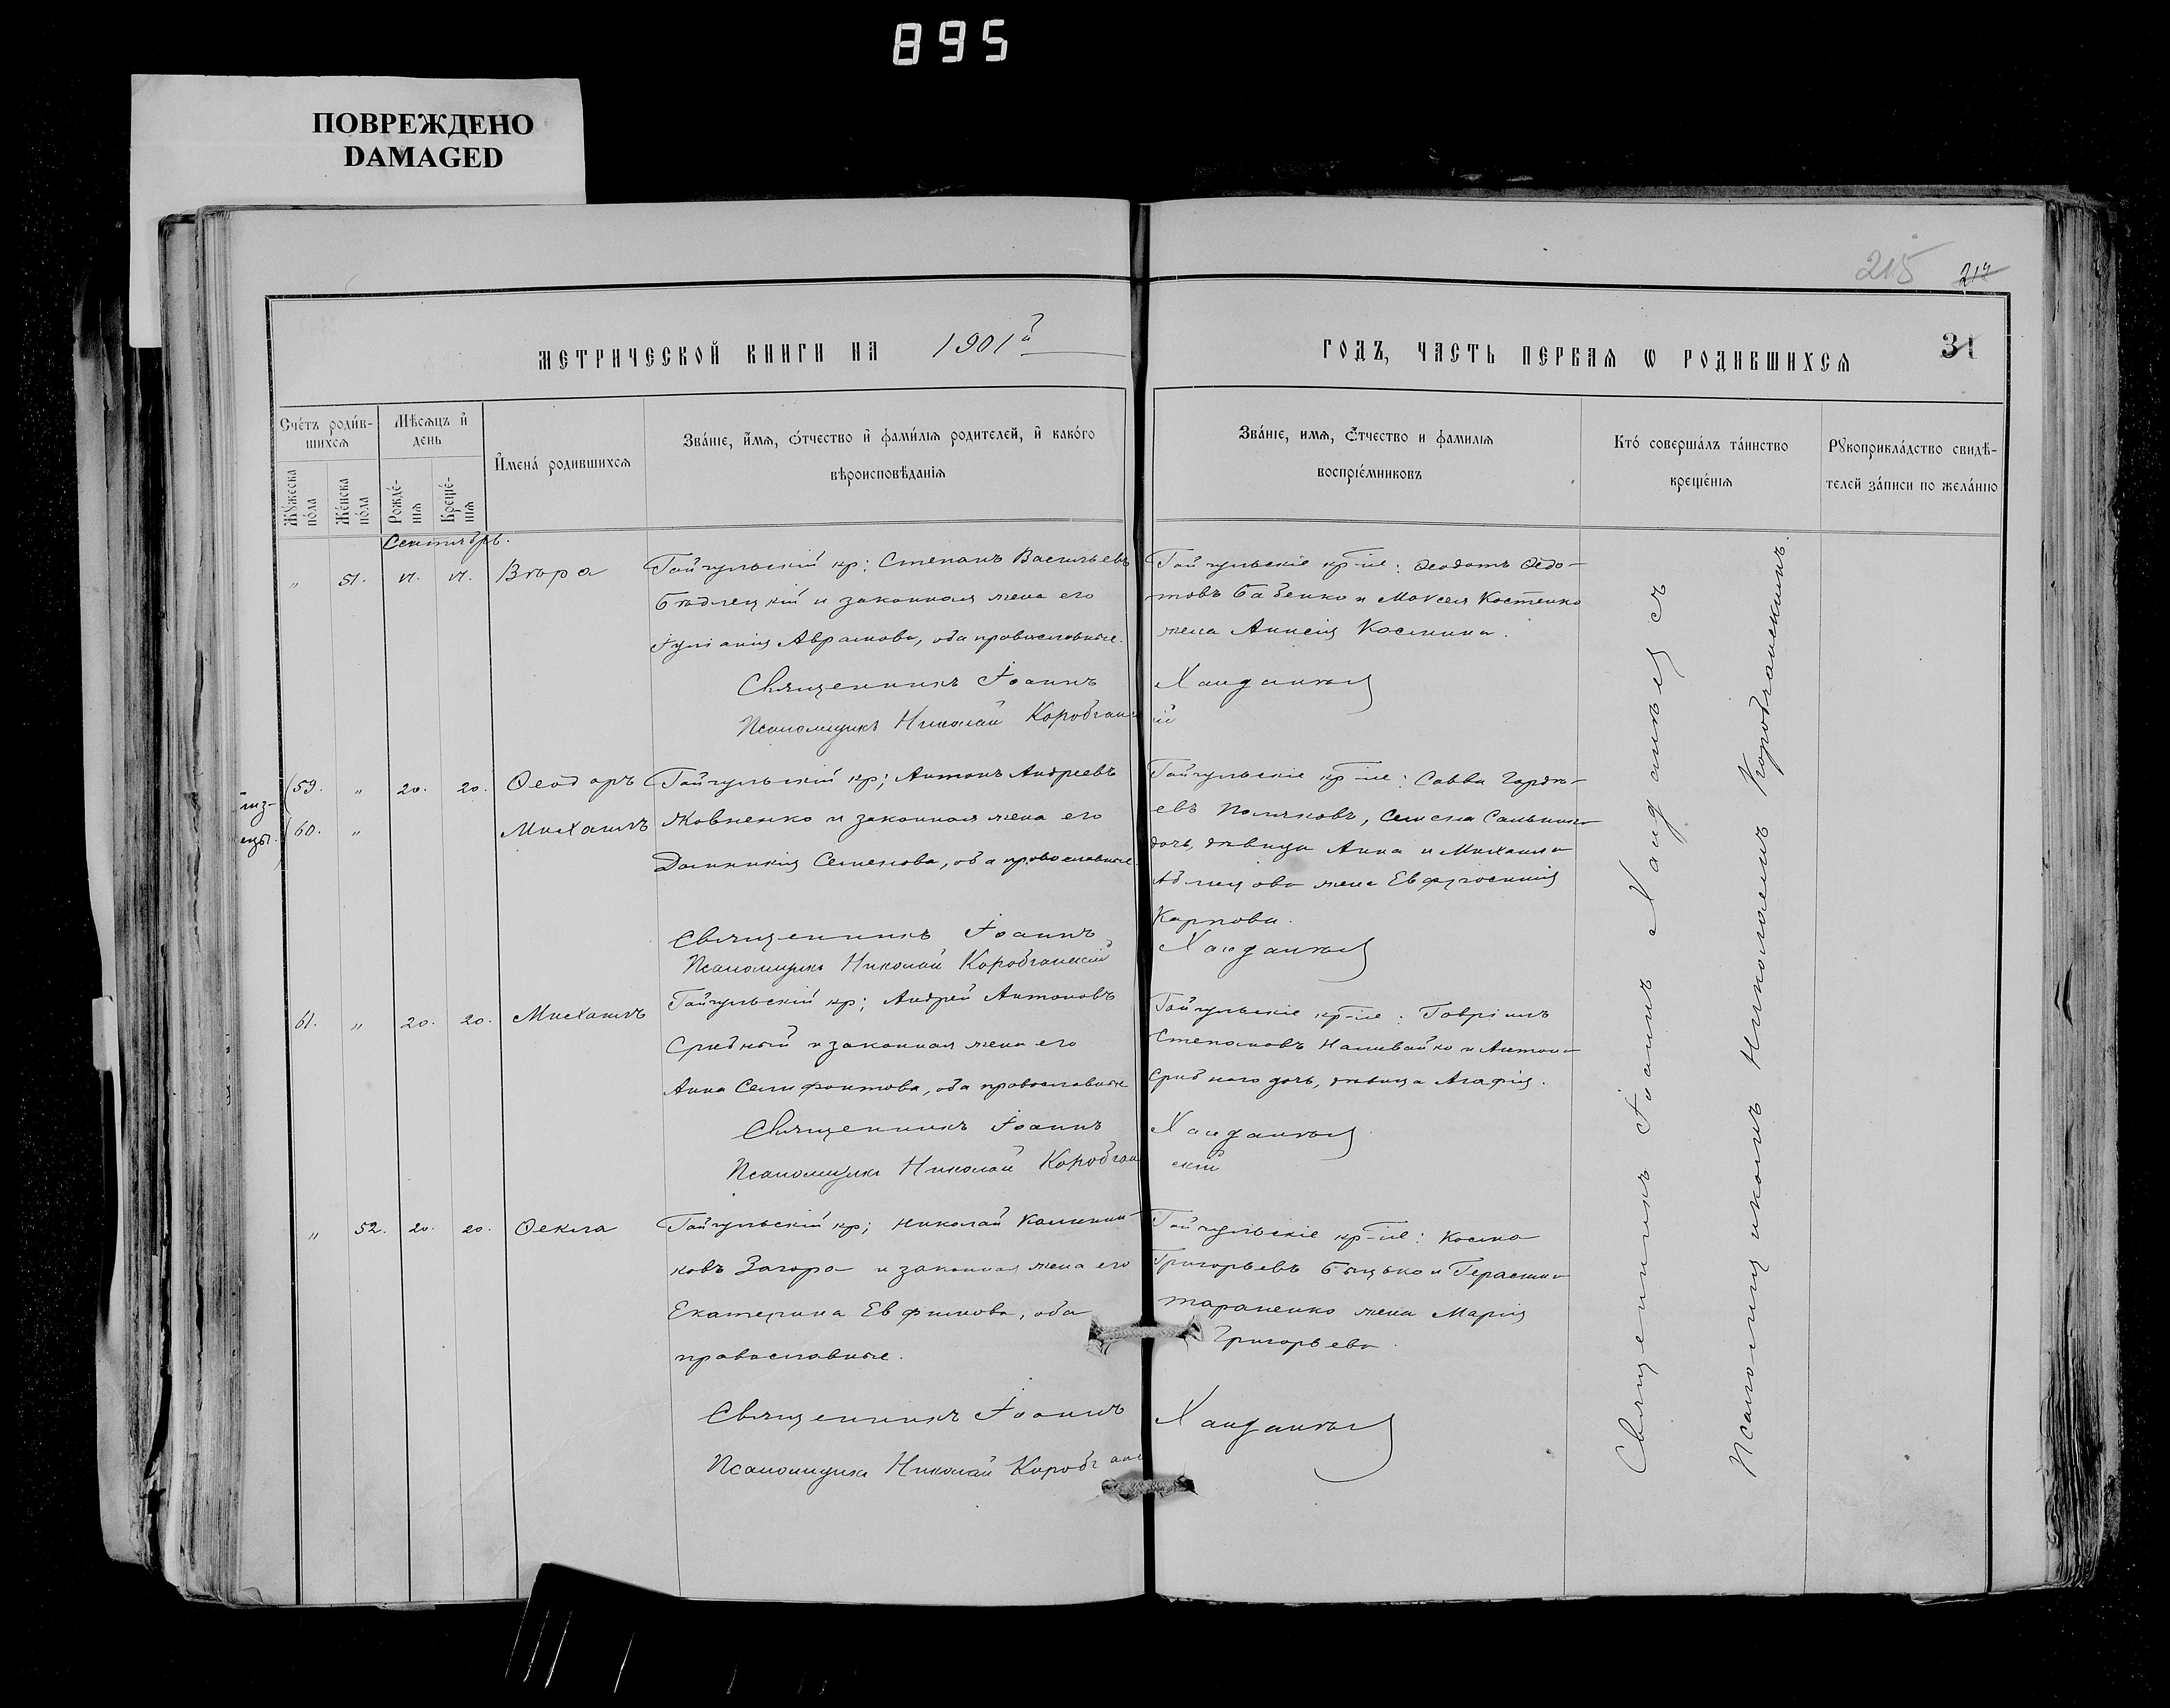 895
ПОВРЕЖДЕНО
DAMAGED
215 214
МЕТРИЧЕСКОЙ КНИГИ НА 1901й
ГОДЪ, ЧАСТЬ ПЕРВАЯ Ѡ РОДИВШИХСЯ 31
Счётъ роди́в-
шихся
Мꙋжеска
по́ла
Же́нска
по́ла
Мѣсяцъ и
день
Рожде́-
нія
Креще́-
нія
Имена́ родившихся
Зва́ніе, и́мя, о́тчество и фами́лія родителей, и како́го
вѣроисповѣданія
Зва́ніе, имя, ѻ́тчество и фамилія
воспріе́мниковъ
Кто́ соверша́лъ та́инство
креще́нія
Рꙋкоприкла́дство свидѣ-
телей за́писи по жела́нію
Сентябрь.
" 51. 17. 17. Вѣра
Гайчульскій кр; Степанъ Васильевъ
Бѣдлецкій и законная жена его
Іуліанія Аврамова, оба православные.
Священникъ Іоаннъ
Псаломщикъ Николай Коробчанс
Гайчульскіе кр-не: Ѳеодотъ Ѳедо-
товъ Бабенко и Моѵсея Костенко
жена Анисія Космина.
Ханданѣев
кій
близ-
нецы.
59. " 20. 20. Ѳеодоръ
60. " Михаилъ
Гайчульскій кр; Антонъ Андреевъ
Яковненко и законная жена его
Домникія Семенова, оба православные.
Священникъ Іоаннъ
Псаломщикъ Николай Коробчанскій
Гайчульскіе кр-не: Савва Гордѣ-
евъ Поляковъ, Семена
дочь, дѣвица Анна и Михаила
жена Евфросинія
Карпова.
Ханданѣев
61. " 20. 20. Михаилъ
Гайчульскій кр; Андрей Антоновъ
Срибный и законная жена его
Анна Селифонтова, оба православные
Священникъ Іоаннъ
Псаломщикъ Николай Коробчан
Гайчульскіе кр-не: Гавріилъ
Степановъ Наливайко и Антона
Срибнаго дочь, дѣвица Агафія.
Ханданѣев
скій
" 52. 20. 20. Ѳекла
Гайчульскій кр; Николай Калинни-
ковъ Загора и законная жена его
Екатерина Евфимова, оба
православные.
Священникъ Іоаннъ
Псаломщикъ Николай Коробчанс
Гайчульскіе кр-не: Косма
Григорьевъ Бицько и Герасима
Тараненко жена Марія
Григорьева.
Ханданѣев
Священникъ Іоаннъ Ханданѣев съ
Псаломщикомъ Николаемъ Коробчанскимъ.